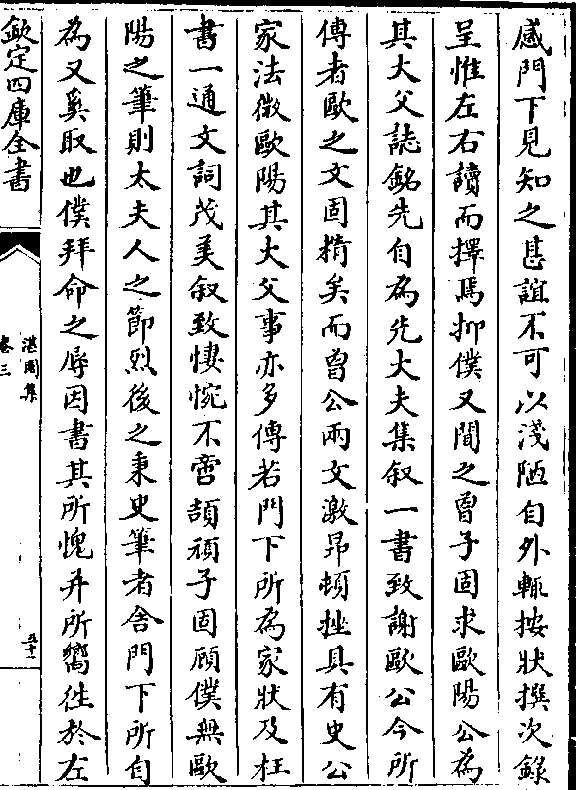 感門下見知之甚誼不可以淺陋自外輒按狀撰次錄
呈惟左右讀而擇焉抑僕又聞之曾子固求歐陽公為
其大父誌銘先自為先大夫集叙一書致謝歐公今所
傳者歐之文固精矣而曾公兩文激昂頓挫具有史公
家法微歐陽其大父事亦多傳若門下所為家狀及枉
書一通文詞茂美叙致悽惋不啻頡頏子固顧僕無歐
陽之筆則太夫人之節烈後之秉史筆者舍門下所自
為又奚取也僕拜命之辱因書其所愧并所嚮往於左
欽定四庫全書
湛園集
卷三
五十一